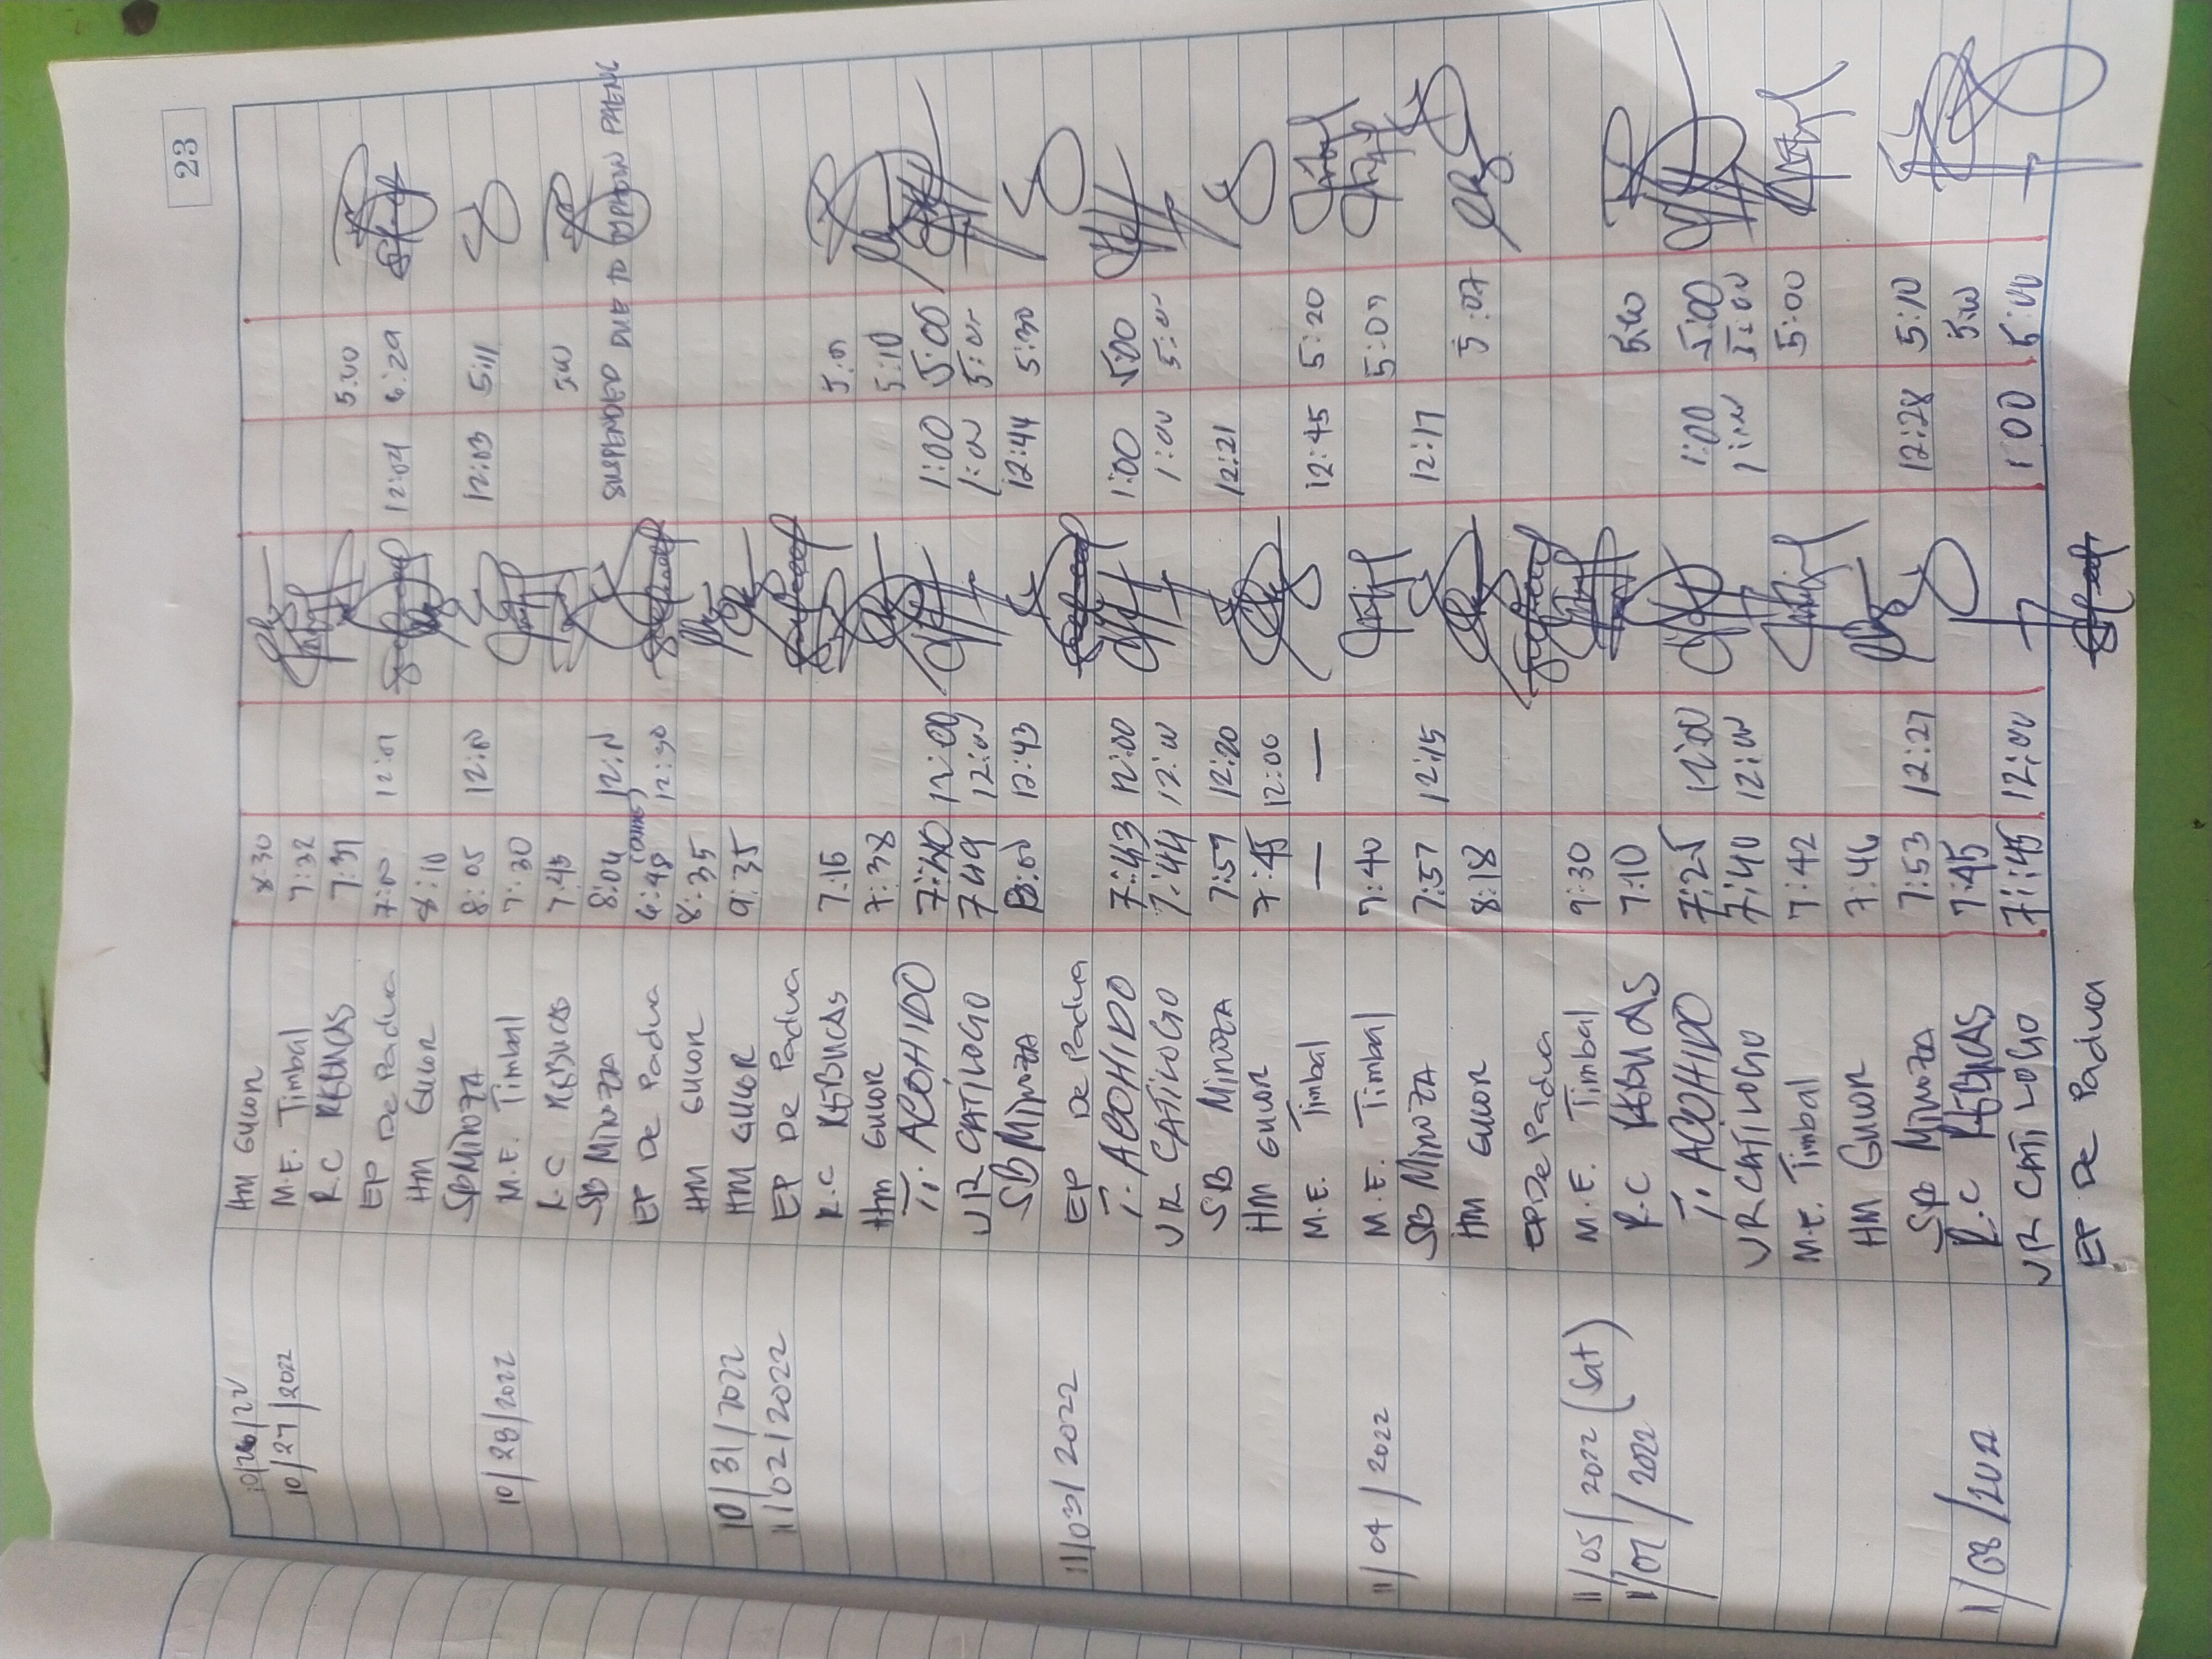 23
10/26/22 HM GUWOR 8:30
10/27/2022 M.E. Timbal 7:32
R.C REBUCAS 7:31 5:00
EP De Padua 7:00 12:01 12:04 6:29
HM GUWOR 8:10
SBMinoZA 8:05 12:N 12:03 5:11
10/28/2022 M.E. Timbal 7:30
R.C REBUCAS 7:45 5:00
SB MinoZA 8:04 12:N SUSPENDED DUE TO TYPHOON PAENG
EP De Padua 6:48 12:30
HM GUWOR 8:35
10/31/2022 HM GUWOR 9:35
11/02/2022 EP De Padua
R.C REBUCAS 7:15 5:01
HM GUWOR 7:38 5:10
T. ACOHIDO 7:40 12:00 1:00 5:00
VR CATILOGO 749 12:00 1:00 5:00
SB MinoZA 8:00 12:43 12:44 5:30
11/03/2022 EP De Padua
T. ACOHIDO 7:43 12:00 1:00 5:00
VR CATILOGO 7:44 12:00 1:00 5:00
SB MinoZA 7:59 12:20 12:21
HM GUWOR 7:45 12:00
M.E. Timbal — — 12:45 5:20
11/04/2022 M.E. Timbal 7:40 5:07
SB MinoZA 7:57 12:15 12:17
HM GUWOR 8:18 5:07
EP De Padua
11/05/2022 (Sat) M.E. Timbal 9:30
11/07/2022 R.C REBUCAS 7:10 5:00
T. ACOHIDO 7:25 12:00 1:00 5:00
VR CATILOGO 7:40 12:00 1:00 5:00
M.E. Timbal 7:42 5:00
HM GUWOR 7:46
SB MinoZA 7:53 12:27 12:28 5:10
11/08/2022 R.C REBUCAS 7:45 5:00
VR CATILOGO 7:45 12:00 1:00 5:00
EP De Padua